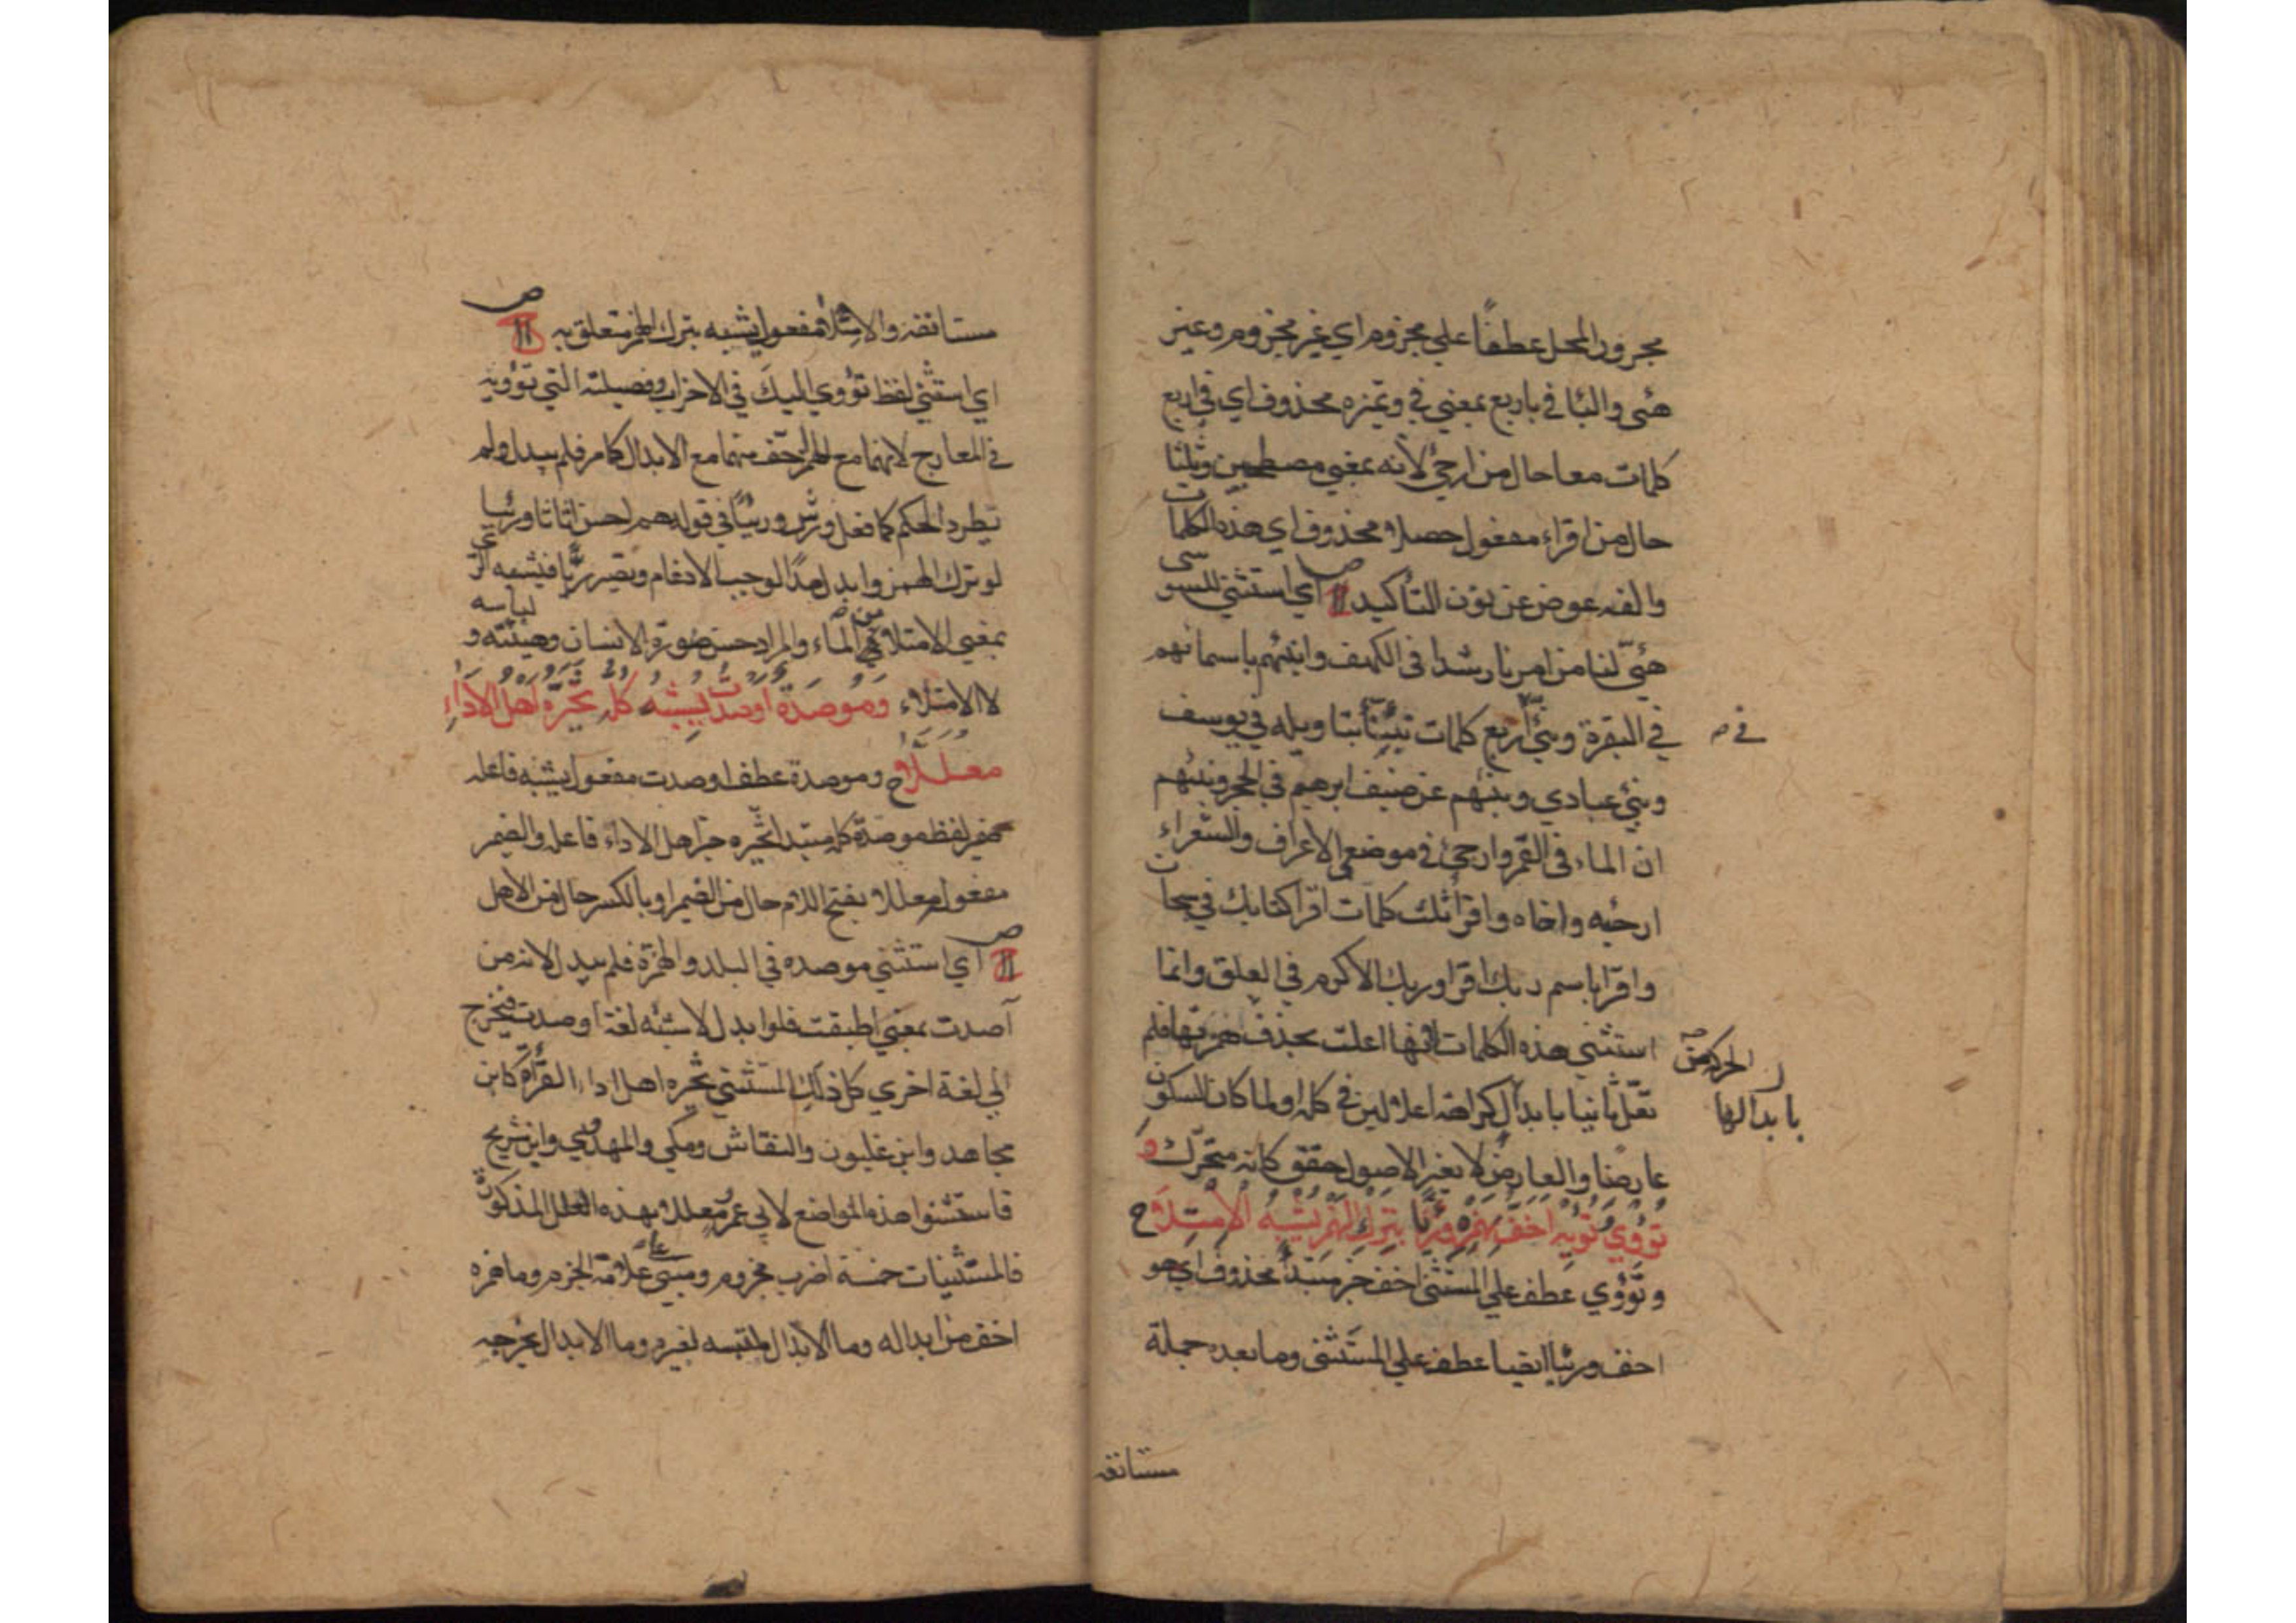 مجرور المحل عطفا علي مجزوم اي غير مجزوم وغير
هئى والبا في باربع بمعني في وتميزه محذوف اي في اربع
كلمات معا حال من ارجئ لانه بمعني مصطحبين وثلثا
حال من اقراء مفعول حصلا محذوف اي هذه الكلمات
والفه عوض عن نون التاكيد اي استثني للسوسي
هيئ لنا من امرنا رشدا في الكهف وانبئهم باسمائهم
في البقرة ونبئ اربع كلمات نبئنا بتاويله في يوسف
في
ونبئ عبادي ونبئهم عن ضيف ابرهيم في الحجر ونبئهم
ان الماء في القمر وارجئ في موضعي الاعراف والشعراء
ارجئه واخاه واقرا ثلث كلمات اقرا كتابك في سبحان
واقرا باسم ربك اقرا وربك الاكرم في العلق وانما
استثني هذه الكلمات لانها اعلت بحذف همزتها فلم
تعل ثانيا بابدال كراهة اعلالين في كلمه ولما كان السكون
بابدالها
عارضا والعارض لا يغير الاصول حقق كانه متحرك و
تؤوي تؤيه اخف بهمزه ورئيا بترك الهمز يشبه الامتلا ح
وتؤوي عطف علي المستثنى اخف خبر مبتدأ محذوف اي هو
اخف ورئيا ايضا عطف علي المستثنى وما بعده جملة
مستانفه
مستانفه والامتلا مفعول يشبه بترك الهمز متعلق به
اي استثني لفظ تؤوي اليك في الاحزاب وفصيلته التي تؤويه
في المعارج لانهما مع الهمز اخف منهما مع الابدال كامر فلم يبدل ولم
يطرد الحكم كما فعل ورش ورئيا في قوله هم احسن اثاثا ورئيا
لو ترك الهمز وابدل مدا لوجب الادغام ويصير ريا فيشبه الري
بمعني الامتلا من الماء والمراد حسن صورة الانسان وهيئته ولباسه
لا الامتلاء وموصدة اوصدت يشبه كله تخيره اهل الاداء
معللا ح وموصدة عطف اوصدت مفعول يشبه فاعله
ضمير لفظ موصدة كله مبتدا تخيره خبر اهل الاداء فاعله والضمير
مفعوله معللا بفتح اللام حال من الضمير او بالكسر حال من الاهل
اي استثني موصده في البلد والهمزة فلم يبدل لانه من
آصدت بمعني اطبقت فلو ابدل لاشبه لغة اوصدت فيخرج
الي لغة اخري كل ذلك المستثني تخيره اهل اداء القرأة كابن
مجاهد وابن غلبون والنقاش ومكي والمهدوي وابن شريح
فاستثنوا هذه المواضع لابي عمرو معللا بهذه العلل المذكورة
فالمستثنيات خمسة اضرب مجزوم ومبني علي علامة الجزم وما همزه
اخف من ابداله وما الابدال ملتبسه لغيره وما الابدال يخرجه